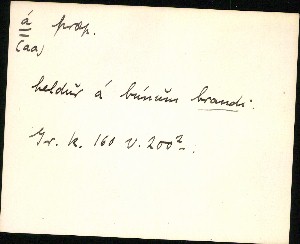 á præp.
(aa)
heldür á búnüm brandi.
Gr. K. 160 V. 200²-.